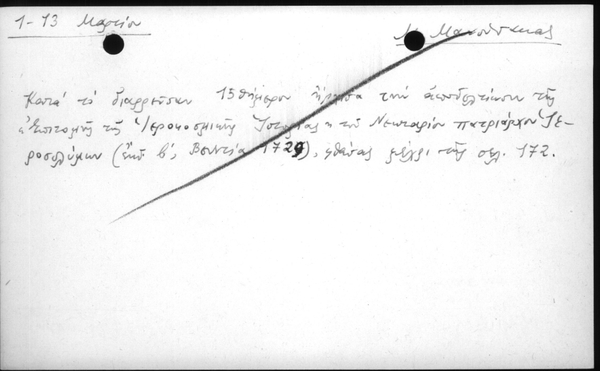 1-13 Μαρτίου
Μ. Μανούσακας
Κατά τό διαρρεῦσαν 15θήμερον ἤρχισα τήν ἀποδελτίωσιν τῆς
«Ἐπιτομῆς τῆς Ἱεροκοσμικῆς Ἱστορίας» τοῦ Νεκταρίου πατριάρχου Ἱε-
ροσολύμων (ἔκδ. β΄, Βενετία 1729), φθάσας μέχρι τῆς σελ. 172.